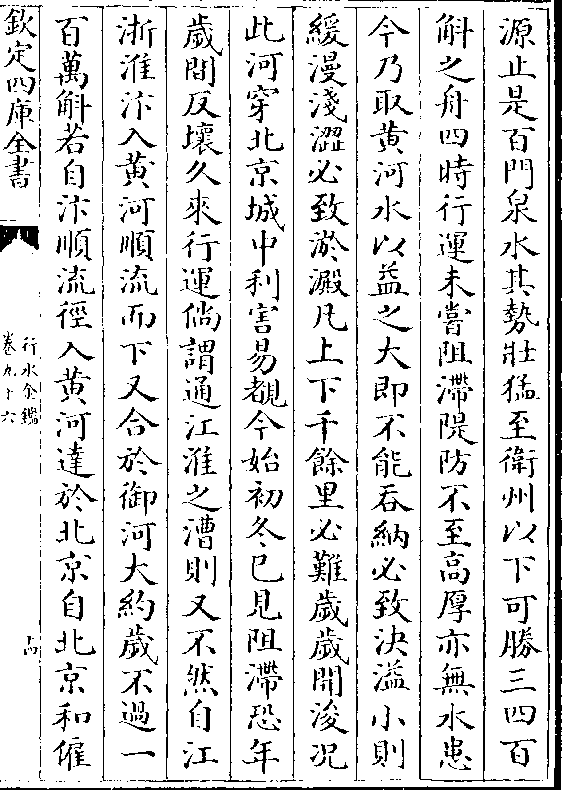 源止是百門泉水其勢壯猛至衛州以下可勝三四百
斛之舟四時行運未嘗阻滯隄防不至高厚亦無水患
今乃取黄河水以益之大即不能吞納必致決溢小則
緩漫淺澀必致淤澱凡上下千餘里必難歲歲開浚况
此河穿北京城中利害易覩今始初冬已見阻滯恐年
歲間反壞久來行運倘謂通江淮之漕則又不然自江
浙淮汴入黄河順流而下又合於御河大約歲不過一
百萬斛若自汴順流徑入黄河達於北京自北京和僱
欽定四庫全書
行水金鑑
卷九十六